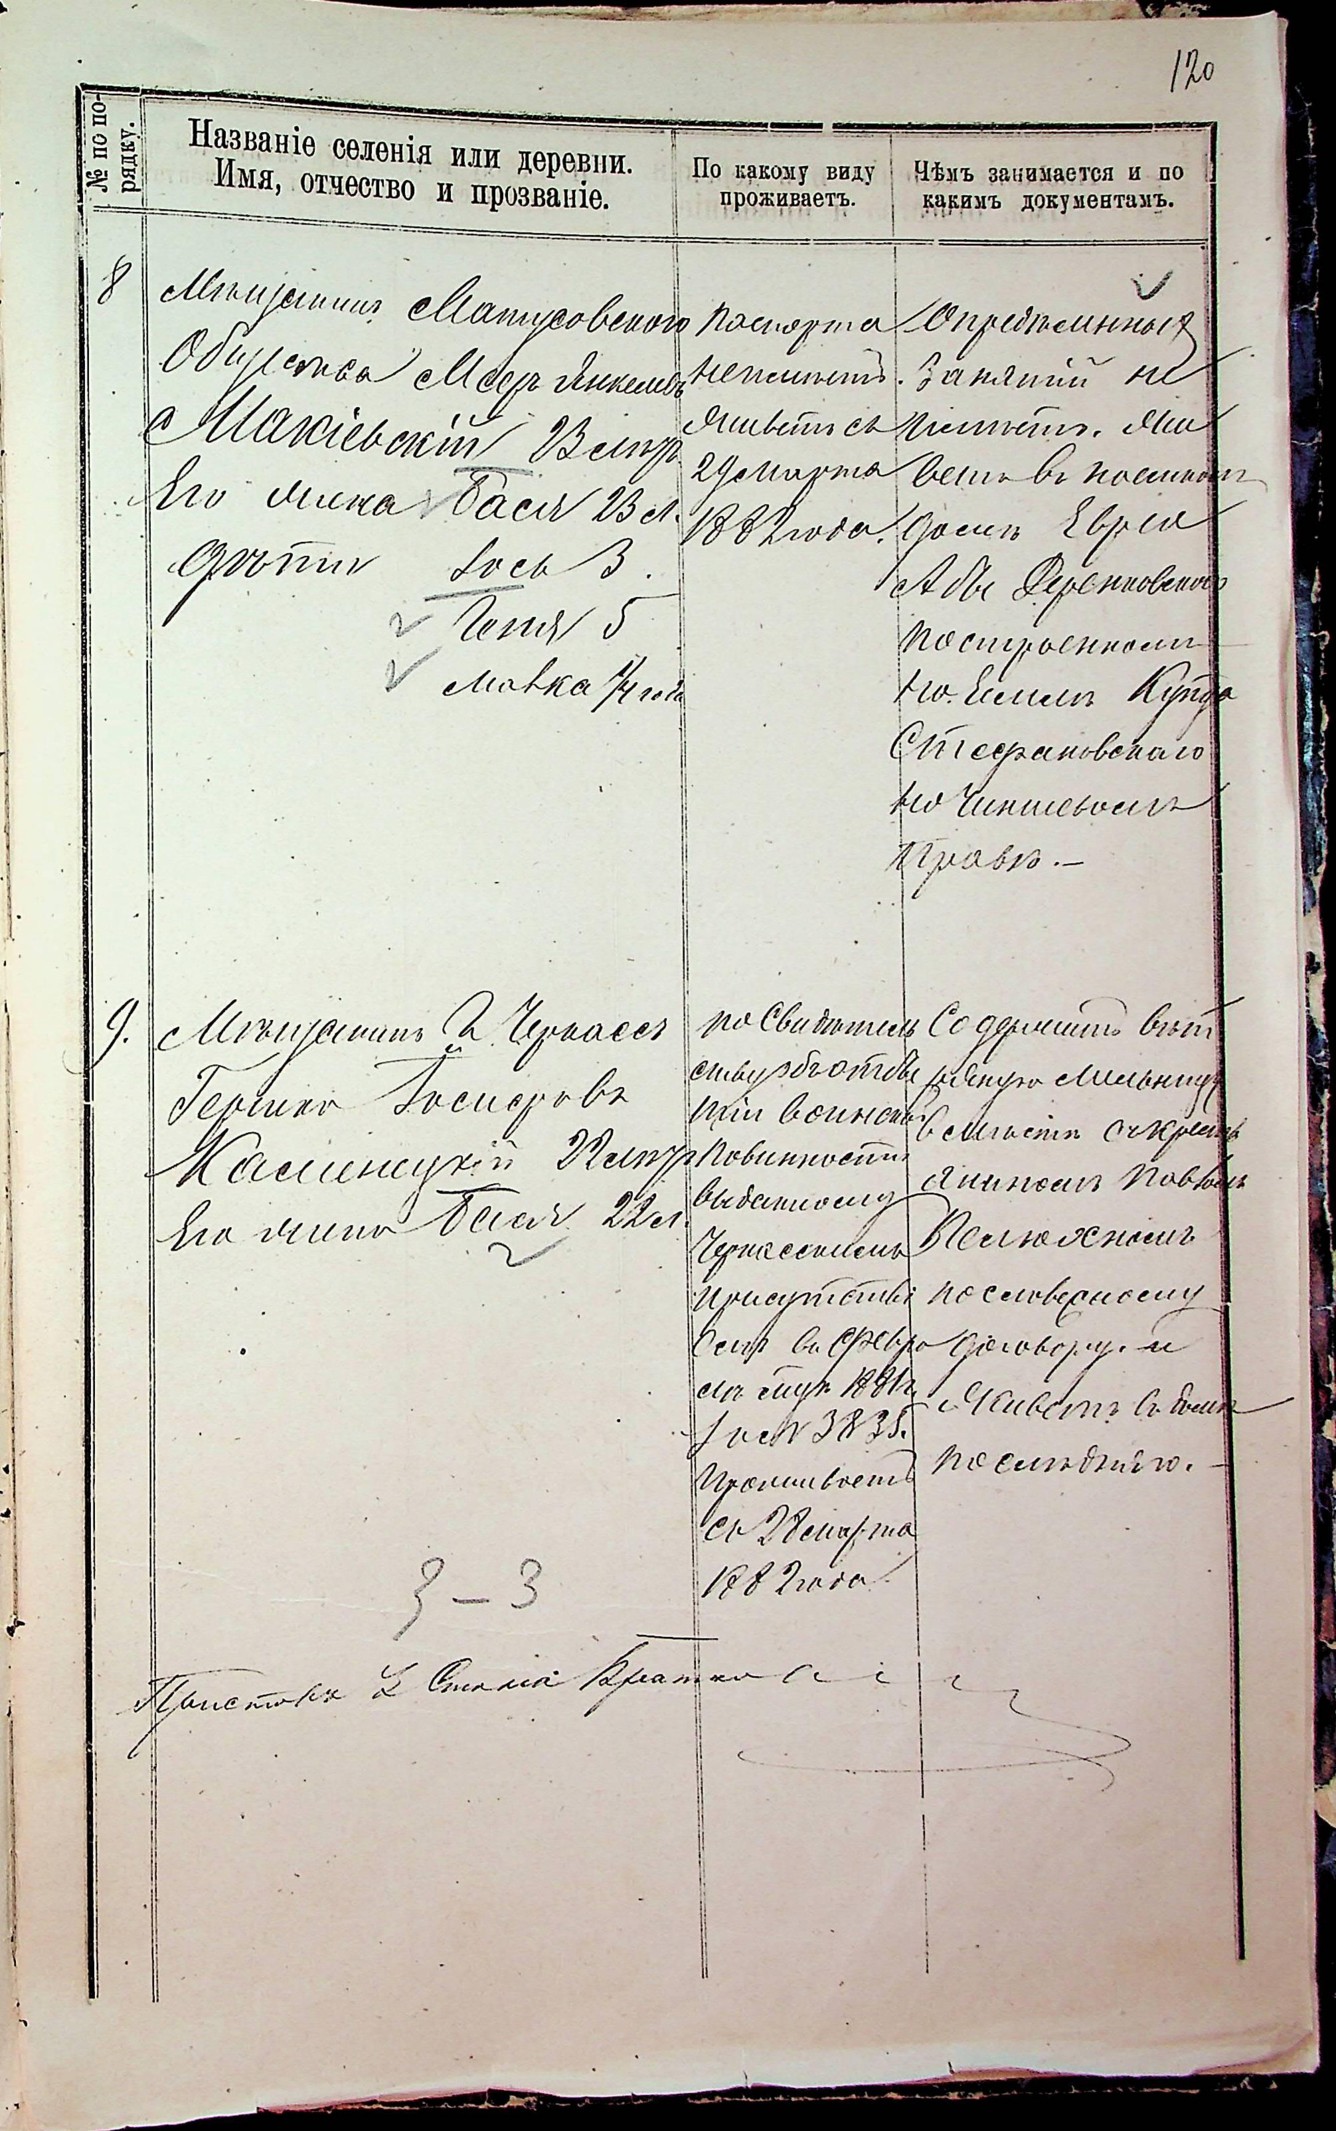 120
№ по по-
рядку.
Названіе селенія или деревни.
Имя, отчество и прозваніе.
По какому виду
проживаетъ.
Чѣмъ занимается и по
какимъ документамъ.
8
Мѣщанинъ Матусовскаго
Общества Мееръ Янкелевъ
Макіевскій 23 лѣтъ
Его жена Бася 23 л.
Дѣти Іось 3.
Геня 5
Мовка 1/4 года
Паспорта
не имѣетъ.
Живетъ съ
29 марта
1882 года.
Определенныхъ
Занятій не
имѣетъ. Жи
ветъ въ наемномъ
домѣ Еврея
Абы Деренковскаго
построенномъ
на землѣ Купца
Стефановскаго
на Чиншевомъ
Правѣ.—
9.
Мѣщанинъ г. Черкассъ
Гершко Іосифовъ
Каменецкій 22 лѣтъ
Его жена Бася 22 л.
по Свидѣтель
ству объ отбы
тіи воинской
повинности
выданному
Черкасскимъ
присутстві
емъ въ Февра
лѣ 1881 г.
за № 3835.
Проживаетъ
съ 28 марта
1882 года.
Содержитъ вѣт
ряную Мельницу
вмѣстѣ съ крестъ
яниномъ
по словесному
договору. и
Живетъ въ домѣ
послѣдняго.—
3 – 3
Приставъ 2 Стана